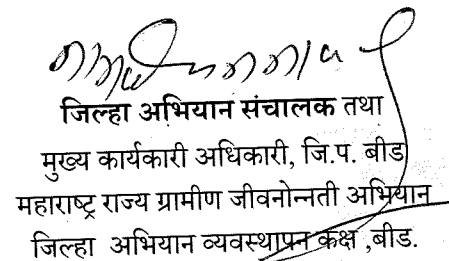 जिल्हा अभियान संचालक तथा
मुख्य कार्यकारी अधिकारी, जि.प. बीड
महाराष्ट्र राज्य ग्रामीण जीवनोन्नती अभियान
जिल्हा अभियान व्यवस्थापन कक्ष ,बीड.